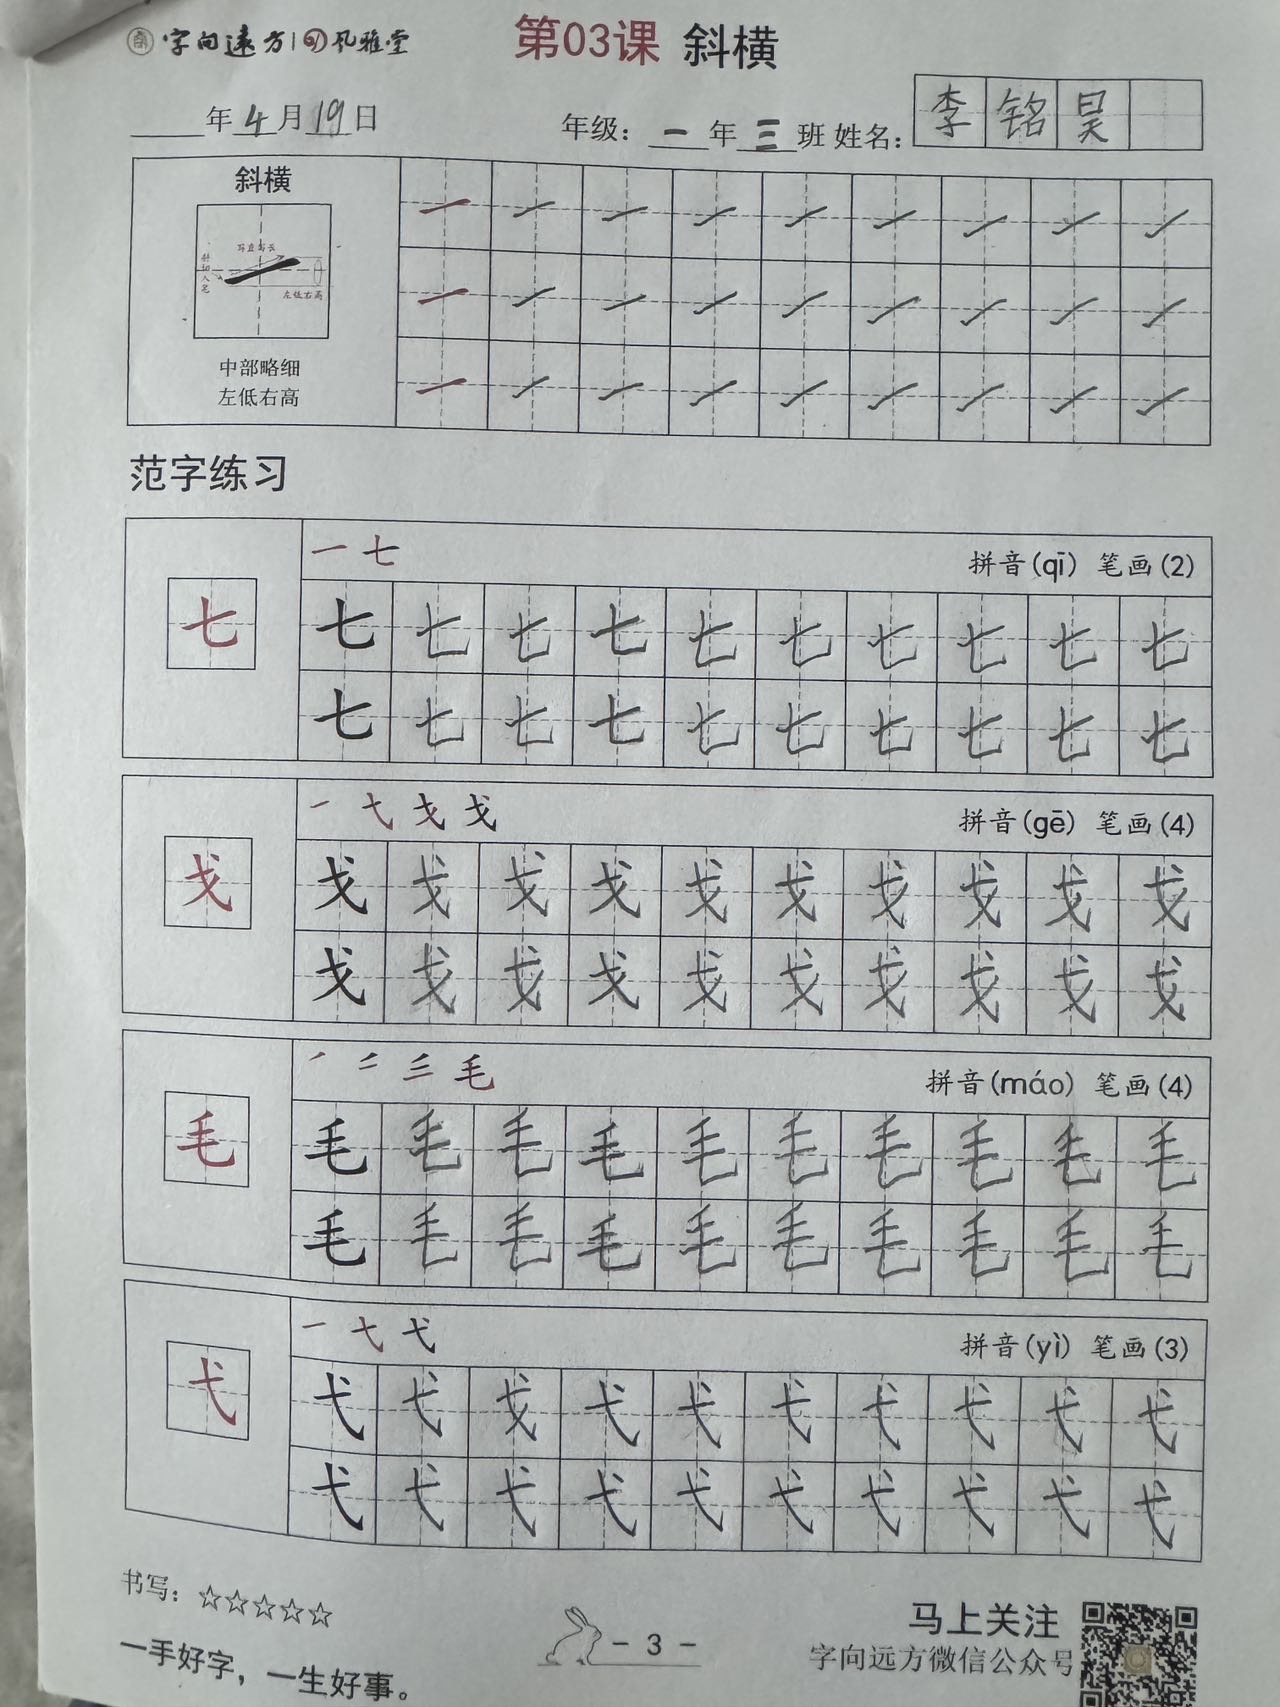 字向远方 风雅堂 第03课 斜横
年4月19日 年级：一年三班 姓名：李铭昊
斜横
写直写长
斜切入笔
左低右高
中部略细
左低右高
一 一 一 一 一 一 一 一 一
一 一 一 一 一 一 一 一 一
一 一 一 一 一 一 一 一 一
范字练习
一 七 拼音(qī) 笔画(2)
七
七 七 七 七 七 七 七 七 七 七
七 七 七 七 七 七 七 七 七 七
一 弋 戈 戈 拼音(gē) 笔画(4)
戈
戈 戈 戈 戈 戈 戈 戈 戈 戈 戈
戈 戈 戈 戈 戈 戈 戈 戈 戈 戈
毛 拼音(máo) 笔画(4)
毛
毛 毛 毛 毛 毛 毛 毛 毛 毛 毛
毛 毛 毛 毛 毛 毛 毛 毛 毛 毛
一 弋 拼音(yì) 笔画(3)
弋
弋 弋 戈 弋 弋 弋 弋 弋 弋 弋
弋 弋 弋 弋 弋 弋 弋 弋 弋 弋
书写：☆☆☆☆☆
一手好字，一生好事。
- 3 -
马上关注
字向远方微信公众号